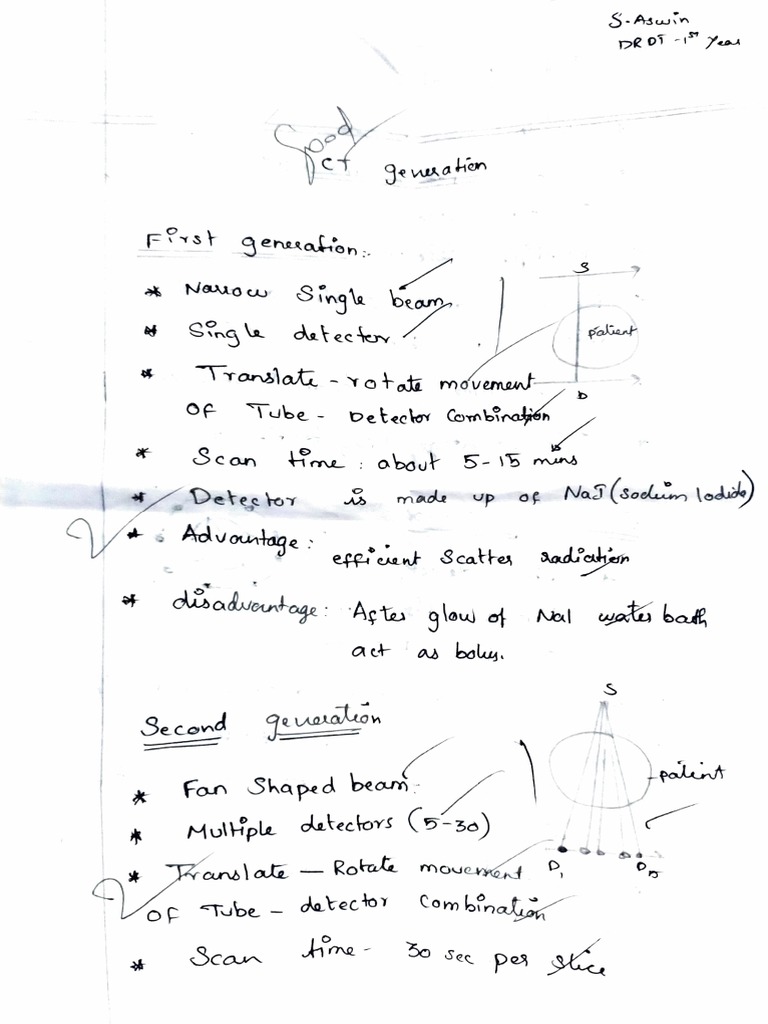 S. Aswin
DRDT - 1st Year
Good
CT generation
First generation:-
* Narrow Single beam
* Single detector
* Translate - rotate movement
OF Tube - Detector Combination
* Scan time : about 5-15 mins
* Detector is made up of NaI (Sodium Iodide)
* Advantage : efficient Scatter radiation
* disadvantage : After glow of NaI water bath
act as bolus.
S
patient
D
Second generation
* Fan Shaped beam
* Multiple detectors (5-30)
* Translate — Rotate movement
OF Tube - detector Combination
* Scan time - 30 sec per slice
S
patient
D1